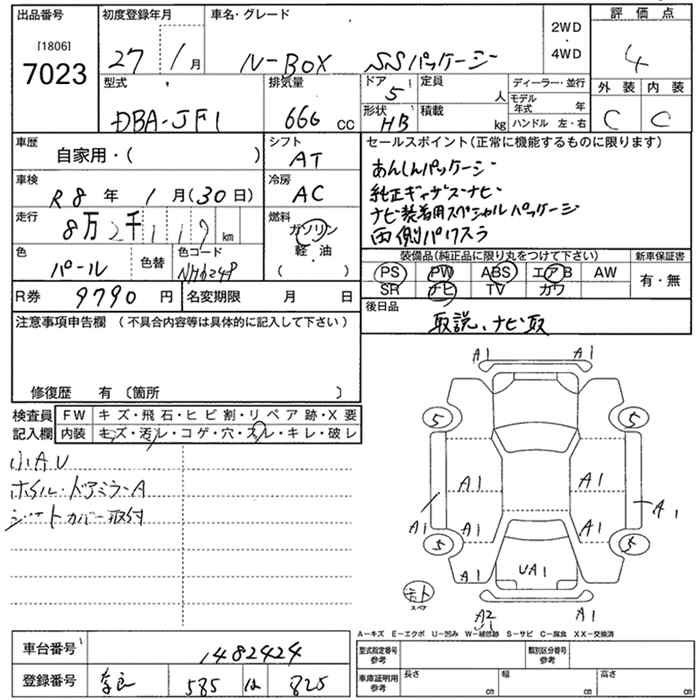 出品番号 初度登録年月 車名・グレード 2WD 評価点
[1806] ・
7023 27 1月 N-BOX SSパッケージ 4WD 4
型式 排気量 ドア 5 定員 人 ディーラー・並行 外装 内装
DBA-JF1 666 cc 形状 HB 積載 kg モデル年式 年 C C
ハンドル 左・右
車歴 シフト セールスポイント(正常に機能するものに限ります)
自家用・( ) AT あんしんパッケージ
車検 冷房 純正ギャザズナビ
R8年 1月(30日) AC ナビ装着用スペシャルパッケージ
走行 燃料 両側パワスラ
8万2千119km ガソリン
軽・油
色 色替 色コード 装備品(純正品に限り丸をつけて下さい) 新車保証書
パール NH624P PS PW ABS エアB AW 有・無
SR ナビ TV カワ
R券 9790円 名変期限 月 日 後日品
取説、ナビ取
注意事項申告欄 (不具合内容等は具体的に記入して下さい)
修復歴 有〔箇所 〕
検査員 FW キズ・飛石・ヒビ割・リペア跡・X要
記入欄 内装 キズ・汚レ・コゲ・穴・スレ・キレ・破レ
小AU
ホイル・ドアミラーA
シートカバー取付
A1 A1
5 5
A1 A1
A1 A1
A1 A1
5 5
A1 UA1
モト
スペア
A2 A1
A-キズ E-エクボ U-凹み W-補修跡 S-サビ C-腐食 XX-交換済
車台番号 1482424 型式指定番号 参考 類別区分番号 参考
登録番号 奈良 585 は 825 車庫証明用 参考 長さ cm 幅 cm 高さ cm